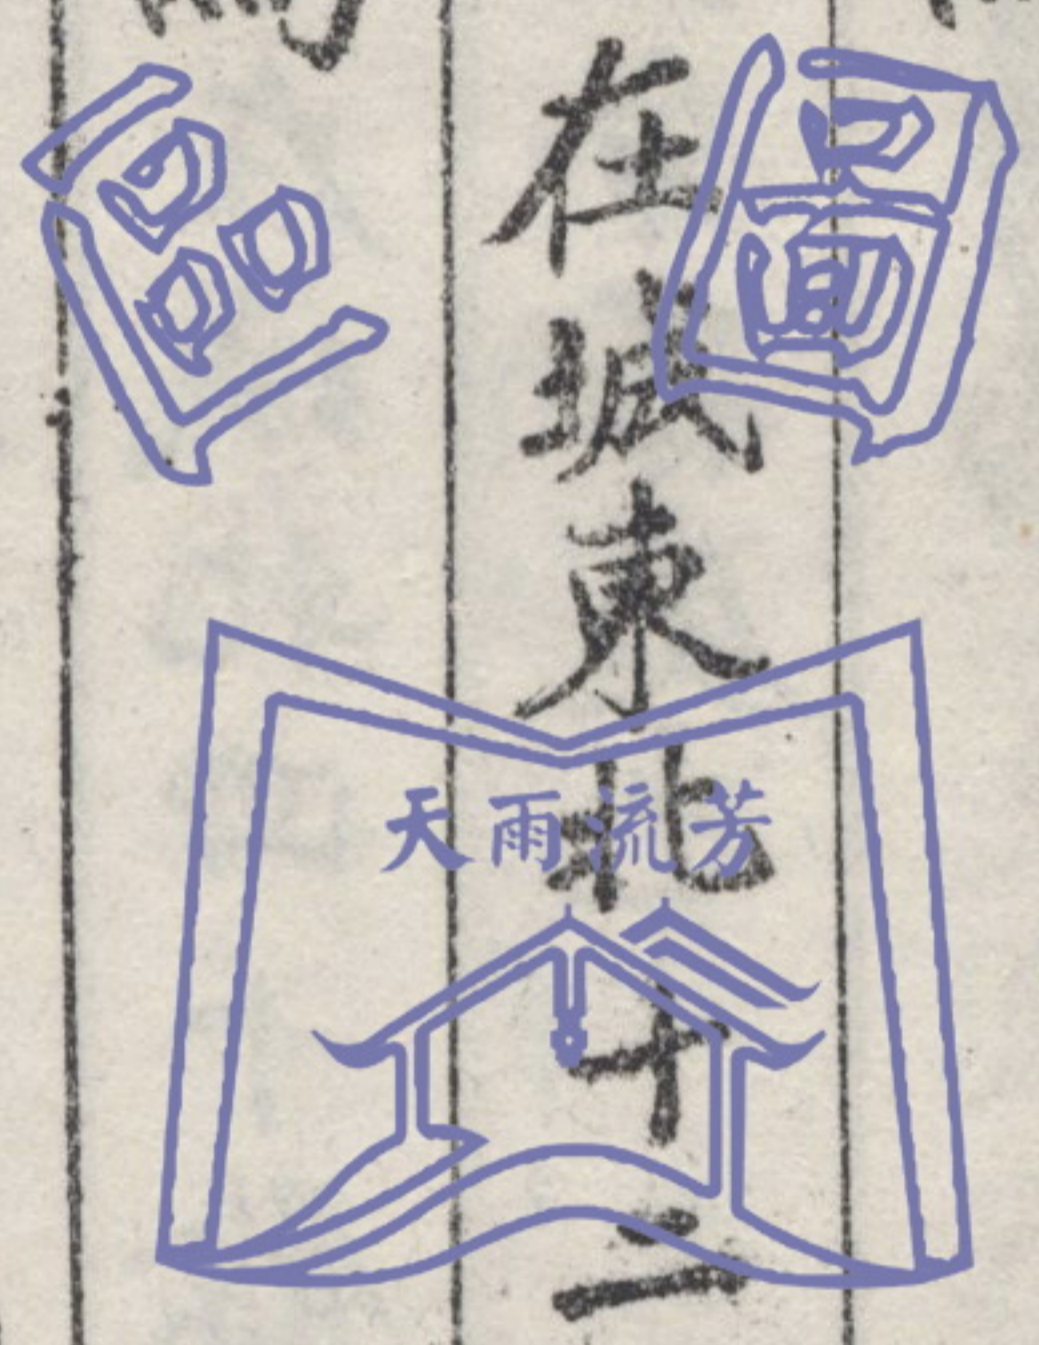 在城東北十二
圖
區
天雨流芳